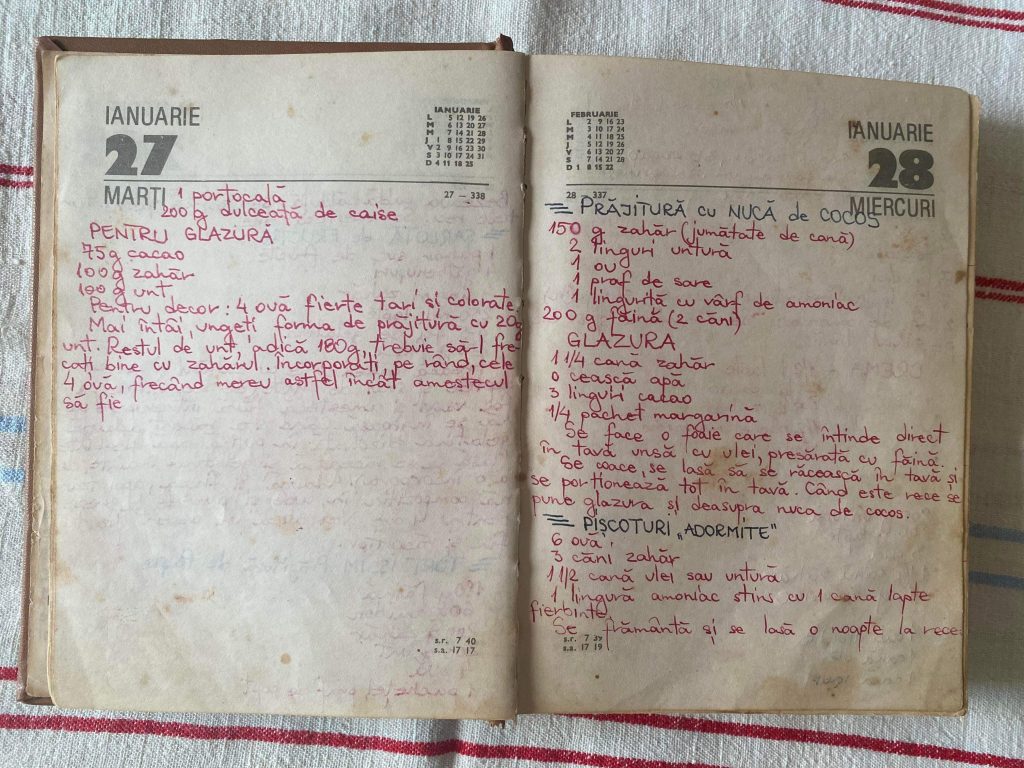 IANUARIE
27
MARȚI
IANUARIE
L 5 12 19 26
M 6 13 20 27
M 7 14 21 28
J 1 8 15 22 29
V 2 9 16 23 30
S 3 10 17 24 31
D 4 11 18 25
27 — 338
1 portocală
200 g dulceață de caise
PENTRU GLAZURĂ
75g cacao
100g zahăr
100g unt
Pentru decor: 4 ouă fierte tari și colorate.
Mai întâi, ungeți forma de prăjitură cu 20g
unt. Restul de unt, adică 180g, trebuie să-l fre
cați bine cu zahărul. Încorporați, pe rând, cele
4 ouă, frecând mereu astfel încât amestecul
să fie
s.r. 7 40
s.a. 17 17
FEBRUARIE
L 2 9 16 23
M 3 10 17 24
M 4 11 18 25
J 5 12 19 26
V 6 13 20 27
S 7 14 21 28
D 1 8 15 22
IANUARIE
28
MIERCURI
28 — 337
PRĂJITURĂ cu NUCĂ de COCOS
150 g zahăr (jumătate de cană)
2 linguri untură
1 ou
1 praf de sare
1 linguriță cu vârf de amoniac
200 g făină (2 căni)
GLAZURA
1 1/4 cană zahăr
o ceașcă apă
3 linguri cacao
1/4 pachet margarină
Se face o foaie care se întinde direct
în tavă unsă cu ulei, presărată cu făină.
Se coace, se lasă să se răcească în tavă și
se porționează tot în tavă. Când este rece se
pune glazura și deasupra nuca de cocos.
PIȘCOTURI „ADORMITE"
6 ouă
3 căni zahăr
1 1/2 cană ulei sau untură
1 lingură amoniac stins cu 1 cană lapte
fierbinte
Se frământă și se lasă o noapte la rece
s.r. 7 39
s.a. 17 19